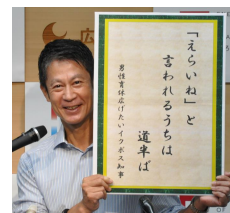 「えらいね」と
言われるうちは
道半ば
男性育休広げたいイクボス知事
広